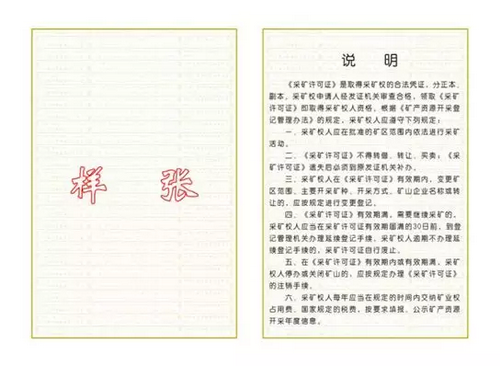 样 张
说 明
《采矿许可证》是取得采矿权的合法凭证，分正本、
副本。采矿权申请人经发证机关审查合格，领取《采矿
许可证》即取得采矿权人资格，根据《矿产资源开采登
记管理办法》的规定，采矿权人应遵守下列规定：
一、采矿权人应在批准的矿区范围内依法进行采矿
活动。
二、《采矿许可证》不得转借、转让、买卖；《采
矿许可证》遗失后必须到原发证机关补办。
三、采矿权人在《采矿许可证》有效期内，变更矿
区范围、主要开采矿种、开采方式、矿山企业名称或转
让的，应按规定进行变更登记。
四、《采矿许可证》有效期满，需要继续采矿的，
采矿权人应当在采矿许可证有效期届满的30日前，到登
记管理机关办理延续登记手续。采矿权人逾期不办理延
续登记的，采矿许可证自行废止。
五、在《采矿许可证》有效期内或有效期满，采矿
权人停办或关闭矿山的，应按规定办理《采矿许可证》
的注销手续。
六、采矿权人每年应当在规定的时间内交纳矿业权
占用费、国家规定的税费，按要求填报、公示矿产资源
开采年度信息。